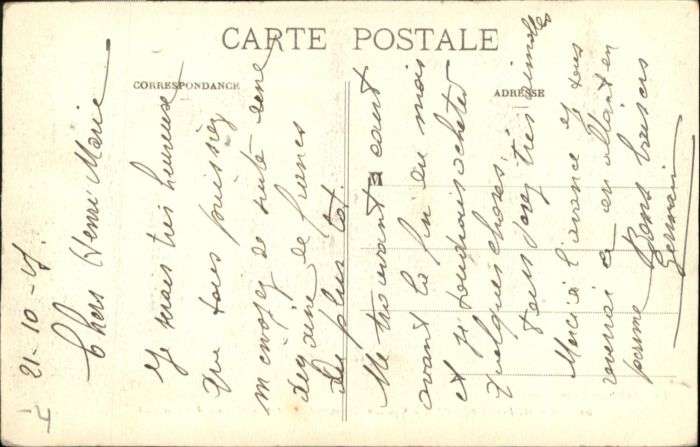 CARTE POSTALE
CORRESPONDANCE
ADRESSE
21-10-
Chers Henri Marie
Je serais très heureuse
que vous puissiez
m'envoyer de suite une
dizaine de francs
au plus tot.
Me trouvant court
avant la fin du mois
et je voudrais acheter
quelques choses,
très simples
Merci à l'avance et vous
en allant en
Bons baisers
Germain